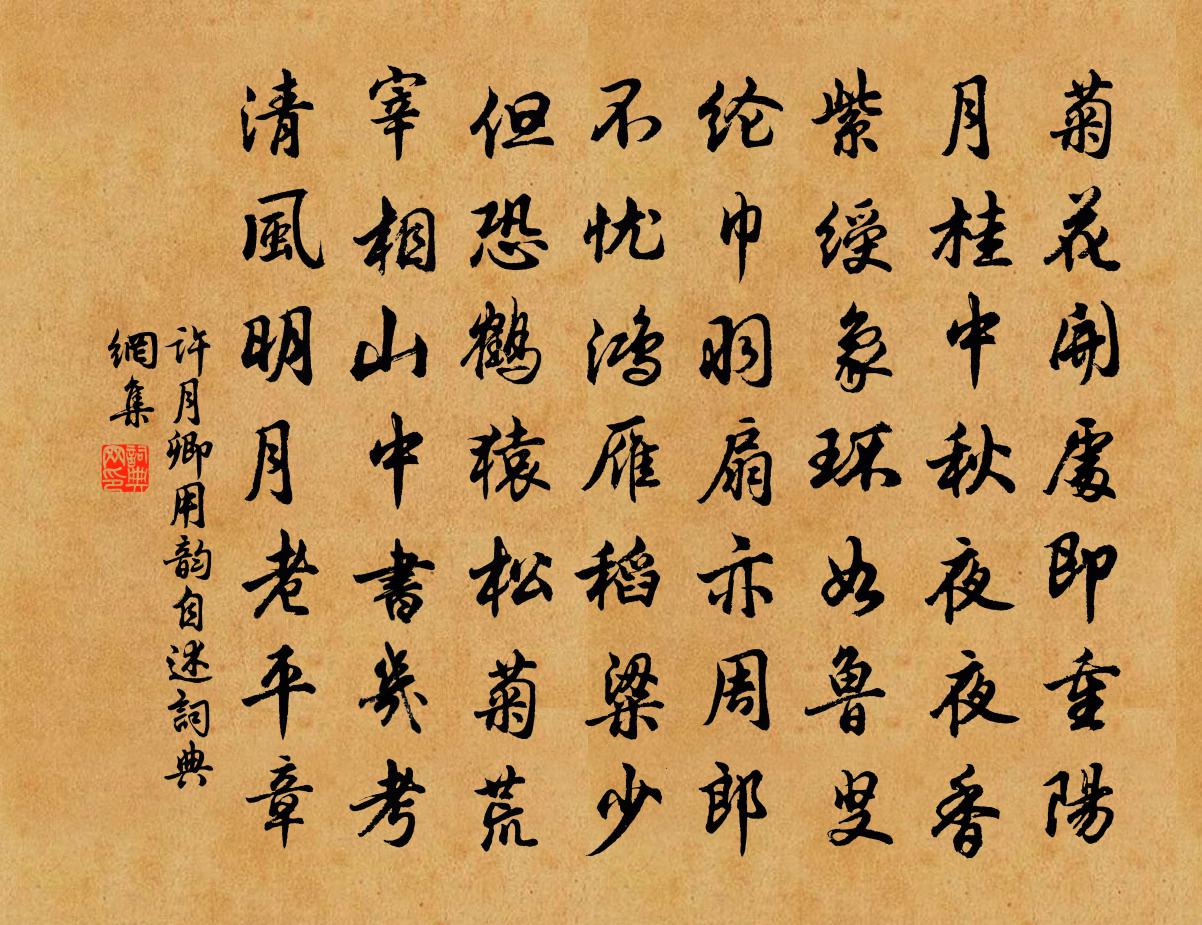 菊花開處即重陽
月桂中秋夜夜香
紫綬象环如鲁叟
纶巾羽扇亦周郎
不忧鸿雁稻粱少
但恐鶴猿松菊荒
宰相山中書幾考
清風明月老平章
许月卿用韵自述詞典
網集
詞典網印